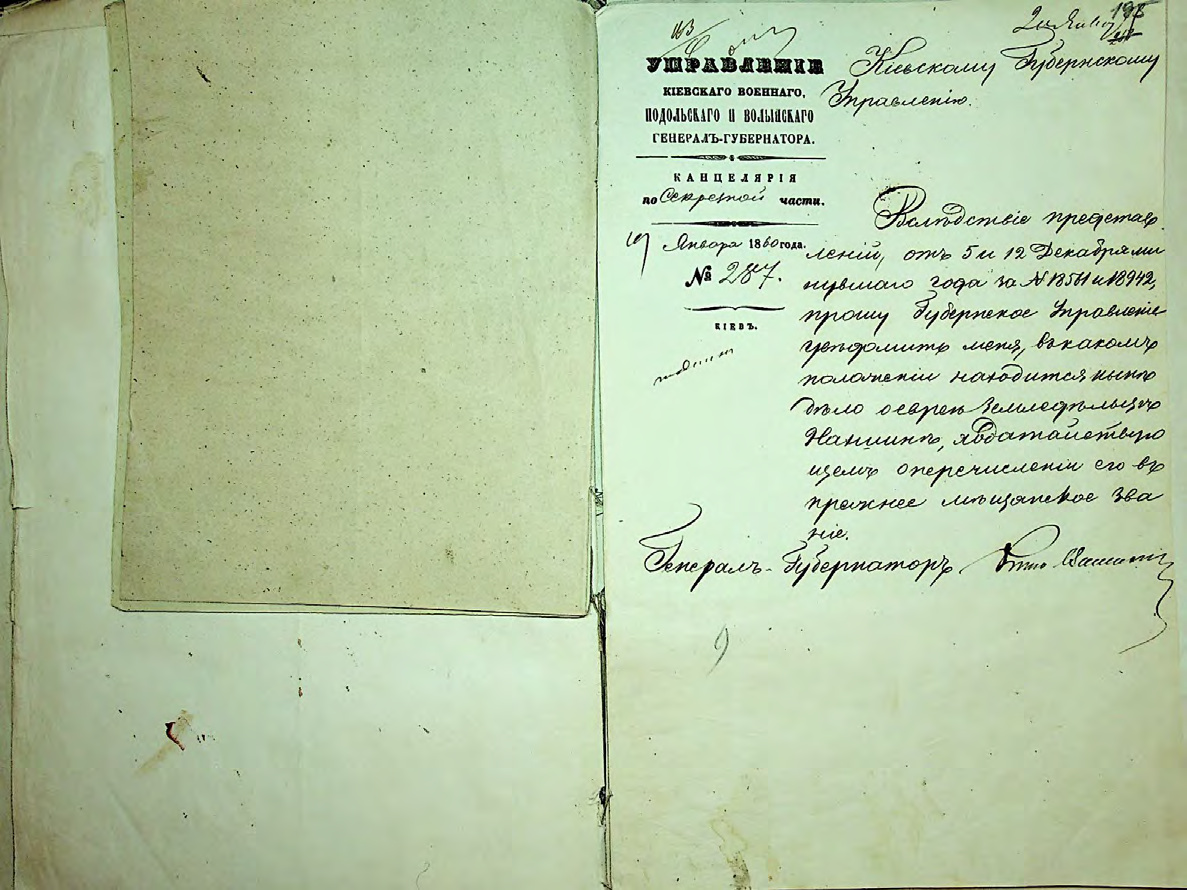 УПРАВЛЕНІЕ
КІЕВСКАГО ВОЕННАГО,
ПОДОЛЬСКАГО И ВОЛЫНСКАГО
ГЕНЕРАЛЪ-ГУБЕРНАТОРА.
КАНЦЕЛЯРІЯ
по Секретной части.
19 Января 1860 года.
№ 287.
КІЕВЪ.
Кіевскому Губернскому
Управленію.
Вслѣдствіе представ
леній, отъ 5 и 12 Декабря ми
нувшаго года за № 18561 и 18942,
прошу Губернское Управленіе
увѣдомить меня, въ какомъ
положеніи находится нынѣ
дѣло о евреѣ земледѣльцѣ
ходатайствую
щемъ о перечисленіи его въ
прежнее мѣщанское зва
ніе.
Генералъ-Губернаторъ
9